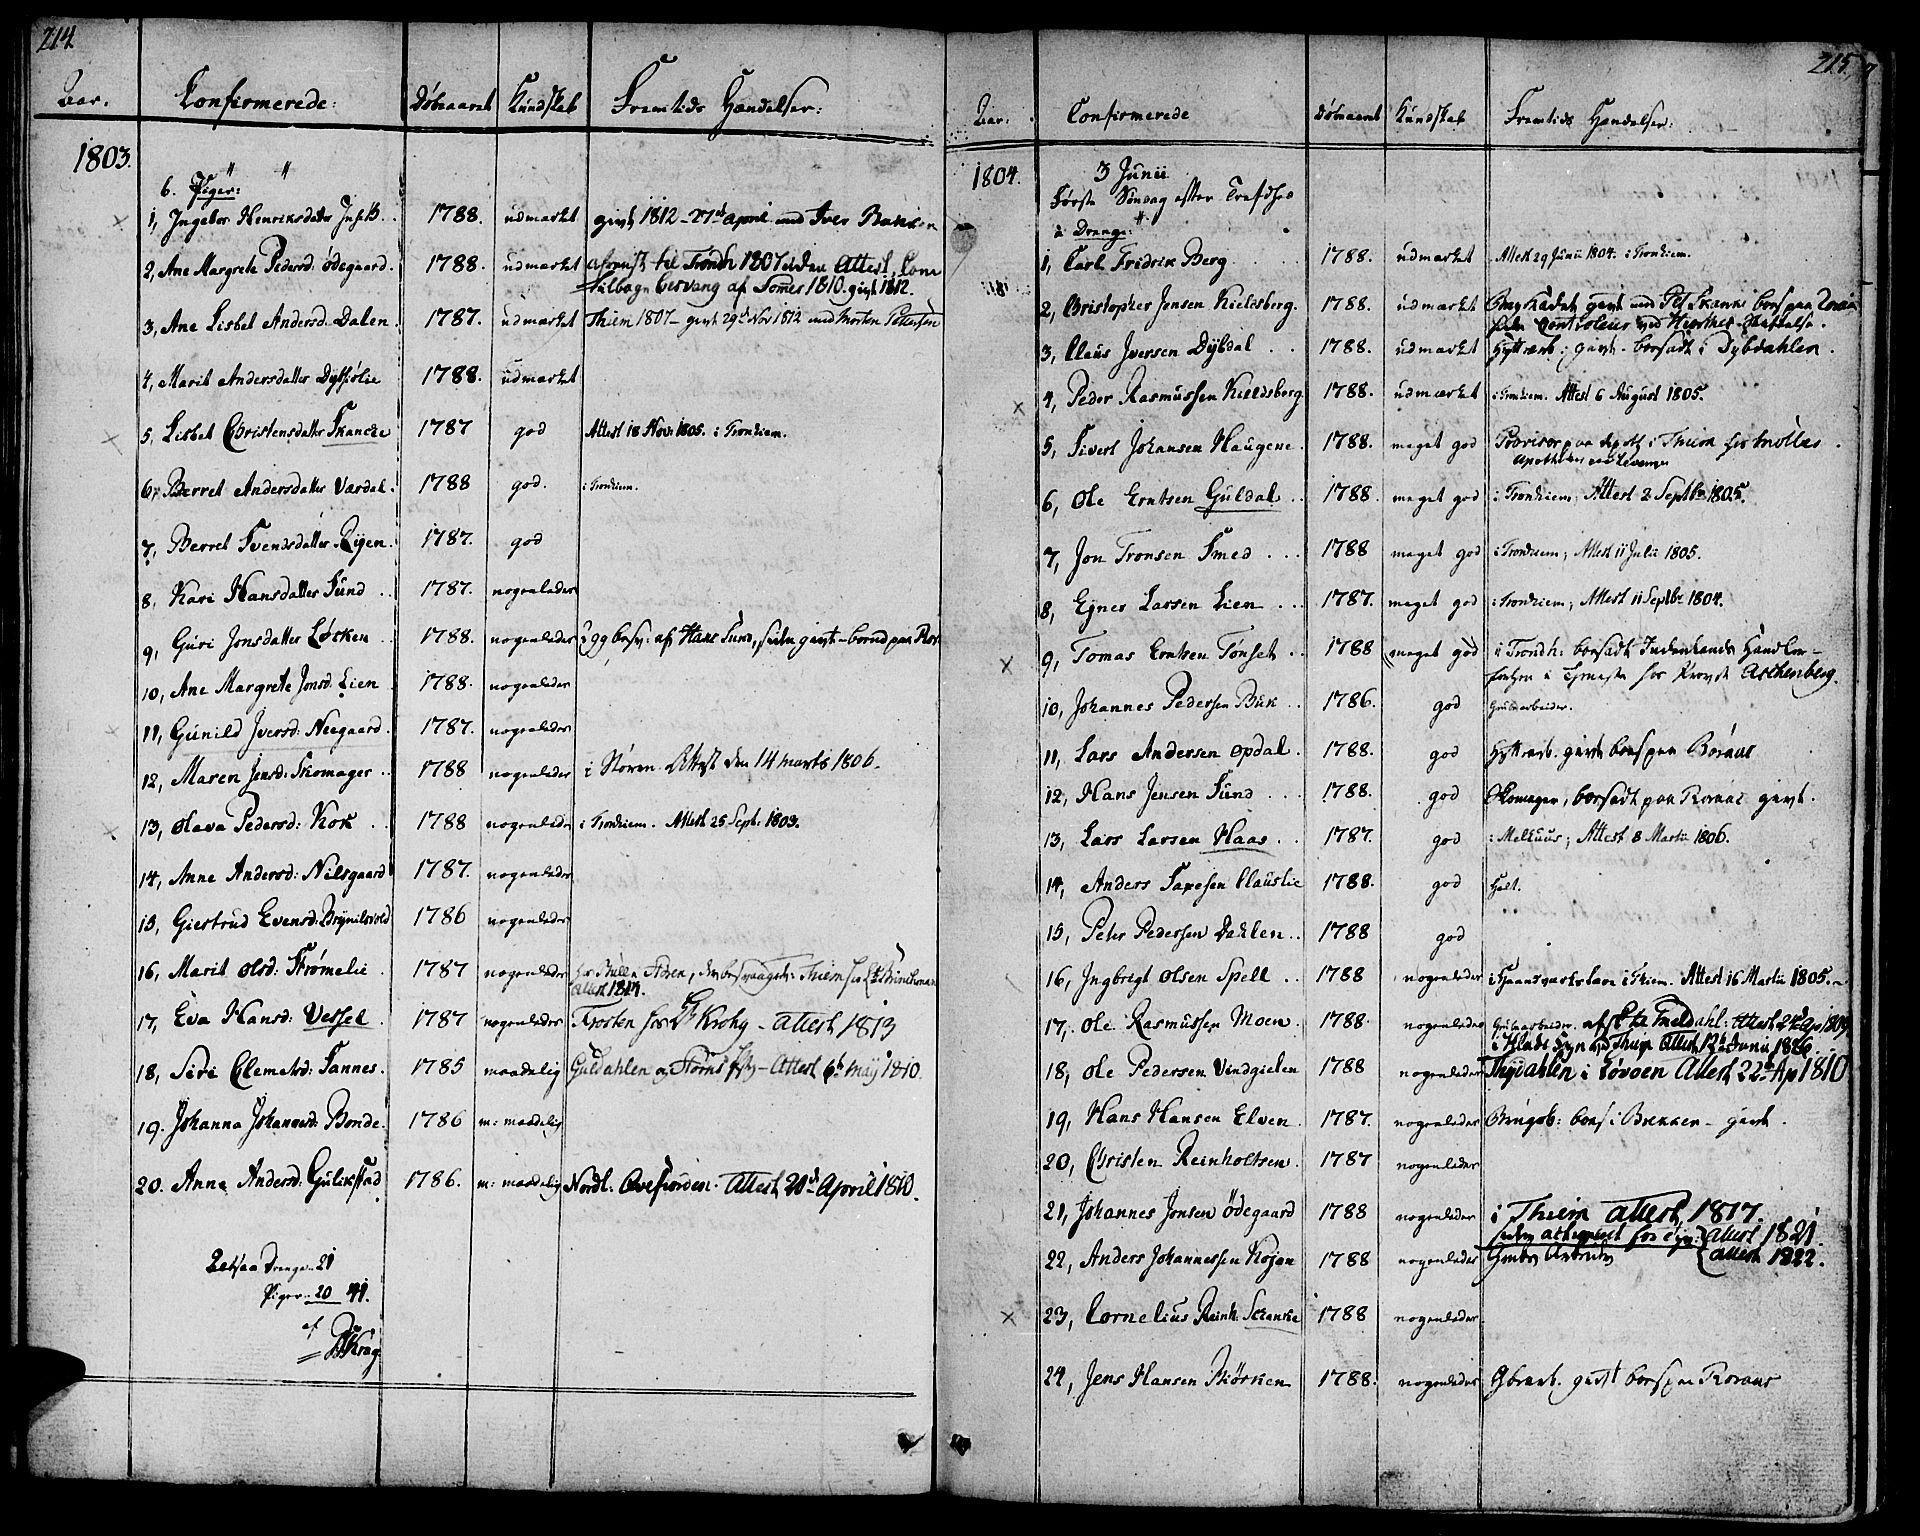 214
Aar. Confirmerede: Døbeaaret Kundskab Fremtids Hændelser:
1803. " "
b. Piger:
1, Ingebor Henriksdatter 1788. udmærket givt 1812 - 27de april med Iver
2, Ane Margrete Pedersd: Ødegaard. 1788. udmærket til Trondh 1807 Attest, kom
tilbage 1810. givt 1812.
3, Ane Lisbet Andersd: Dalen. 1787. udmærket Thiem 1807 - givt 29de Nov 1812 med Morten Pettersen
4, Marit Andersdatter 1788. udmærket
5, Lisbet Christensdatter Skancke 1787 god Attest 18 Nov: 1805. i Tronhiem.
6, Berret Andersdatter Vardal. 1788 god. i Tronhiem.
7, Berret Svendsdatter Ryen. 1787. god
8, Kari Hansdatter Sund 1787. nogenledes
9, Guri Jonsdatter Løsken 1788. nogenledes af Hans Sund, siden givt - boend paa
10, Ane Margrete Jonsd: Lien 1788. nogenledes
11, Gunild Iversd: Neegaard. 1787. nogenledes
12, Maren Jensd: Skomager 1788 nogenledes i Støren Attest den 14 marts 1806.
13, Olava Pedersd: Kok 1788 nogenledes i Tronhiem. Attest 25 Sept: 1803.
14, Anne Andersd: Nilsgaard 1787. nogenledes
15, Giertrud Evensd: Brynildsvold 1786 nogenledes
16, Marit Olsd: Strømelie 1787 nogenledes Thiem
attest
17, Eva Hansd: Vessel. 1787 nogenledes Frosten for Krohg - Attest 1813
18, Siri Clemetsd: Sannes. 1785 maadelig Guldahlen og Størens - Attest 6te maij 1810.
19. Johanna Johannesd: Bonde. 1786 m: maadelig
20. Anna Andersd: Gulikstad 1786. m: maadelig Nordl. Attest 20de April 1810.
Altsaa Drenge - 21
Piger - 20 41.
af
Krog
215
Aar. Confirmerede Døbeaaret Kundskab Fremtids Hændelser:
1804. 3 Junii
Første Søndag efter Trefoldhed
a Drenge: "
1, Carl Fridrik Berg 1788. udmærket Attest 29 Junii 1804. i Tronhiem.
2, Christopher Jensen Kieldsberg. 1788. udmærket givt med
Controleur ved
3, Claus Iversen Dybdal 1788. udmærket Hyttearb: givt - bosadt i Dybdahlen.
4, Peder Rasmussen Kieldsberg 1788. udmærket i Tronhiem. Attest 6 August 1805.
5, Sivert Johansen Haugene. 1788. meget god Provisor paa Apoth i Thiem for Møller
Apotheker
6, Ole Erntsen Guldal 1788. meget god i Tronhiem; Attest 2 Septbr 1805.
7, Jon Tronsen Smed 1788 meget god i Tronhiem; Attest 11 Julii 1805.
8, Eyner Larsen Lien 1787. meget god i Tronhiem; Attest 11 Septbr 1804.
9, Tomas Erntsen Tønset 1788 meget god i Trondh: bosadt Indenlands Handlen-
i Tjeneste for
10, Johannes Pedersen Buk 1786. god Grubearbeider.
11, Lars Andersen Opdal. 1788. god Hyttearb. givt boes paa Røraas
12, Hans Jensen Sund 1788. god Skomager, bosadt paa Røraas givt.
13, Lars Larsen Haas 1787. god i Melhuus; Attest 8 Martii 1806.
14, Anders Clauslie 1788. god
15, Peter Pedersen Dahlen 1788 god
16, Ingbrigt Olsen Spell 1788 nogenledes i Thiem. Attest 16 Martii 1805.
17, Ole Rasmussen Moen 1788. nogenledes Grubearbeider. Meldahl: Attest
Attest 12te Junii 1826
18, Ole Pedersen Vindgielen 1788 nogenledes Thydahlen i Attest 22de Ap 1810
19, Hans Hansen Elven 1787. nogenledes boes i Brekken - givt.
20, Christen Reinholtsen. 1787 nogenledes
21, Johannes Jonsen Ødegaard 1788 nogenledes i Thiem attest 1817.
attest 1821.
22, Anders Johannessen Kojan 1788 nogenledes Grube Arbeider attest 1822.
23, Cornelius Reinh: Schanke 1788 nogenledes
24, Jens Hansen Biørken 1788. nogenledes givt boes paa Røraas